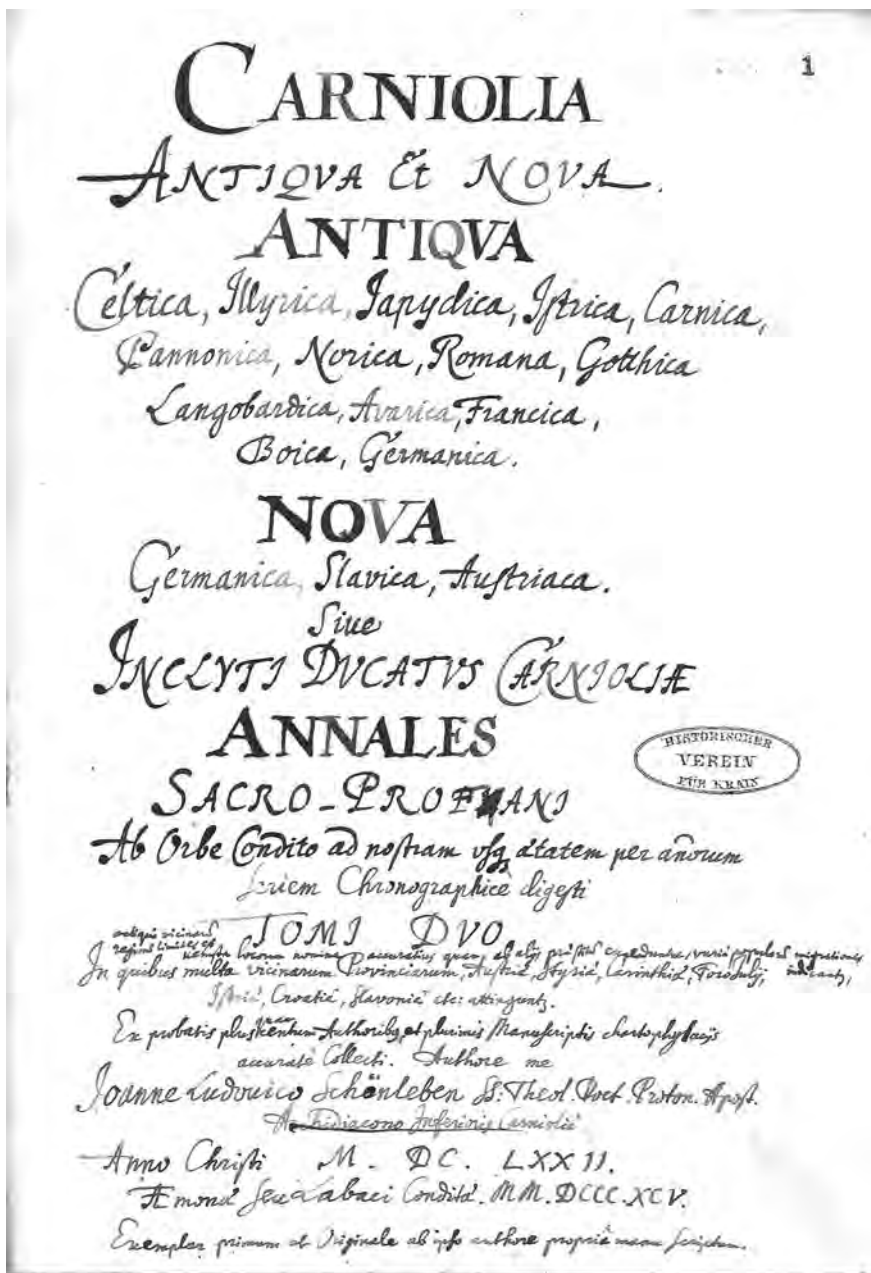 1
CARNIOLIA
ANTIQVA Et NOVA.
ANTIQVA
Celtica, Illyrica, Iapydica, Istrica, Carnica,
Pannonica, Norica, Romana, Gotthica
Langobardica, Avarica, Francica,
Boica, Germanica.
NOVA
Germanica, Slavica, Austriaca.
Siue
INCLYTI DVCATVS CARNIOLIÆ
ANNALES
HISTORISCHER
VEREIN
FÜR KRAIN
SACRO-PROFANI
Ab Orbe Condito ad nostram usq ætatem per añorum
seriem Chronographicè digesti
TOMI DVO
antiqui vicinarũ
regionũ limites et
vetusta locorum nomina accuratius quam ab alijs varia populorũ migrationes
In quibus multa vicinarum Provinciarum, Austriæ, Styriæ, Carinthiæ, Forojulij,
Istriæ, Croatiæ, Slavoniæ etc: attingunt.
Ex probatis plus quam centum Authoribq, et plurimis Manuscriptis chartophylacijs
accuratè Collecti. Authore me
Joanne Ludovico Schönleben SS. Theol. Doct. Proton. Apost.
Archidiacono Inferioris Carnioliæ
Anno Christi M. DC. LXXII.
Æmonæ seu Labaci Conditæ. MM. DCCC. XCV.
Exemplar primum et Originale ab ipso authore propria manu scriptum.